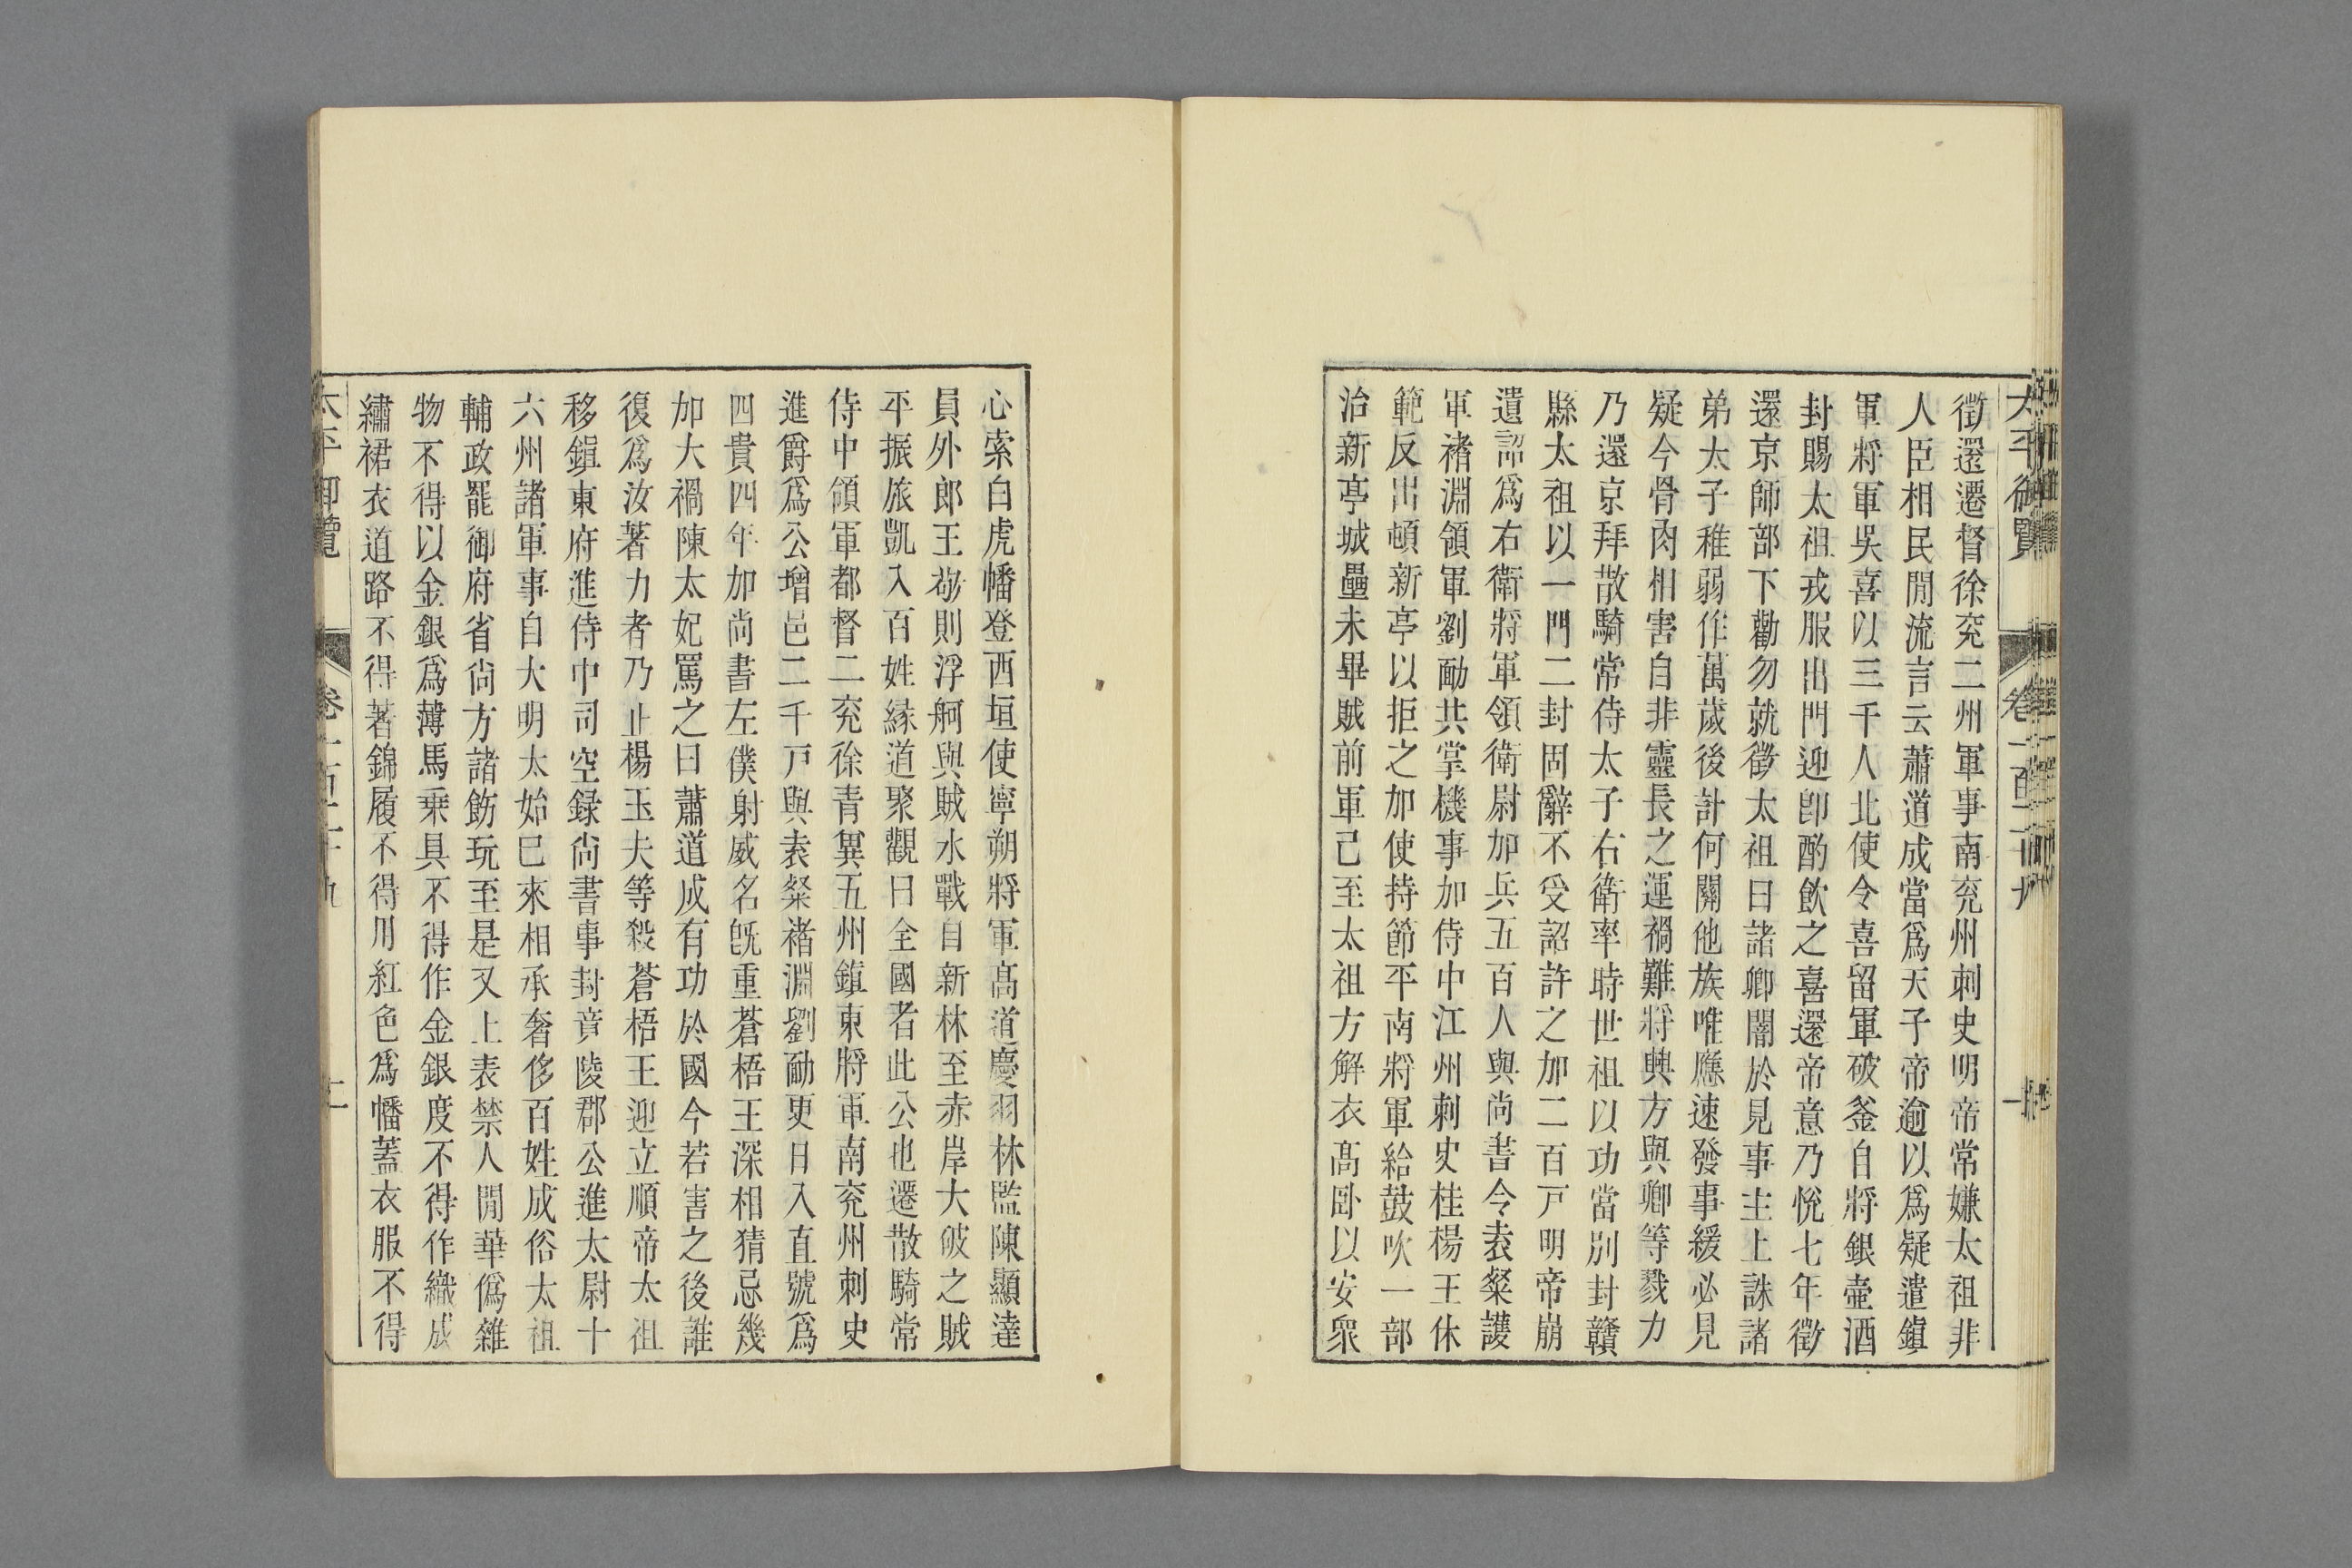 太平御覽 卷一百二十九
徵還遷督徐兖二州軍事南兖州刺史明帝常嫌太祖非
人臣相民閒流言云蕭道成當爲天子帝逾以爲疑遣鎮
軍將軍吳喜以三千人北使令喜留軍破釜自將銀壷酒
封賜太祖戎服出門迎卽酌飲之喜還帝意乃悅七年徵
還京師部下勸勿就徵太祖曰諸卿闇於見事主上誅諸
弟太子稚弱作萬歲後計何關他族唯應速發事緩必見
疑今骨肉相害自非靈長之運禍難將興方與卿等戮力
乃還京拜散騎常侍太子右衛率時世祖以功當別封贛
縣太祖以一門二封固辭不受詔許之加二百戸明帝崩
遺詔爲右衛將軍領衛尉加兵五百人與尚書令袁粲護
軍褚淵領軍劉勔共掌機事加侍中江州刺史桂楊王休
範反出頓新亭以拒之加使持節平南將軍給鼓吹一部
治新亭城壘未畢賊前軍已至太祖方解衣髙卧以安衆
心索白虎幡登西垣使寧朔將軍髙道慶羽林監陳顯達
員外郎王敬則浮舸與賊水戰自新林至赤岸大破之賊
平振旅凱入百姓縁道聚觀曰全國者此公也遷散騎常
侍中領軍都督二兖徐青兾五州鎮東將軍南兖州刺史
進爵爲公增邑二千戸與袁粲褚淵劉勔更日入直號爲
四貴四年加尚書左僕射威名旣重蒼梧王深相猜忌幾
加大禍陳太妃罵之曰蕭道成有功於國今若害之後誰
復爲汝著力者乃止楊玉夫等殺蒼梧王迎立順帝太祖
移鎮東府進侍中司空録尚書事封竟陵郡公進太尉十
六州諸軍事自大明太始巳來相承奢侈百姓成俗太祖
輔政罷御府省尚方諸飭玩至是又上表禁人閒華僞雜
物不得以金銀爲薄馬乗具不得作金銀度不得作織成
繡裙衣道路不得著錦履不得用紅色爲幡蓋衣服不得
太平御覽 卷一百二十九